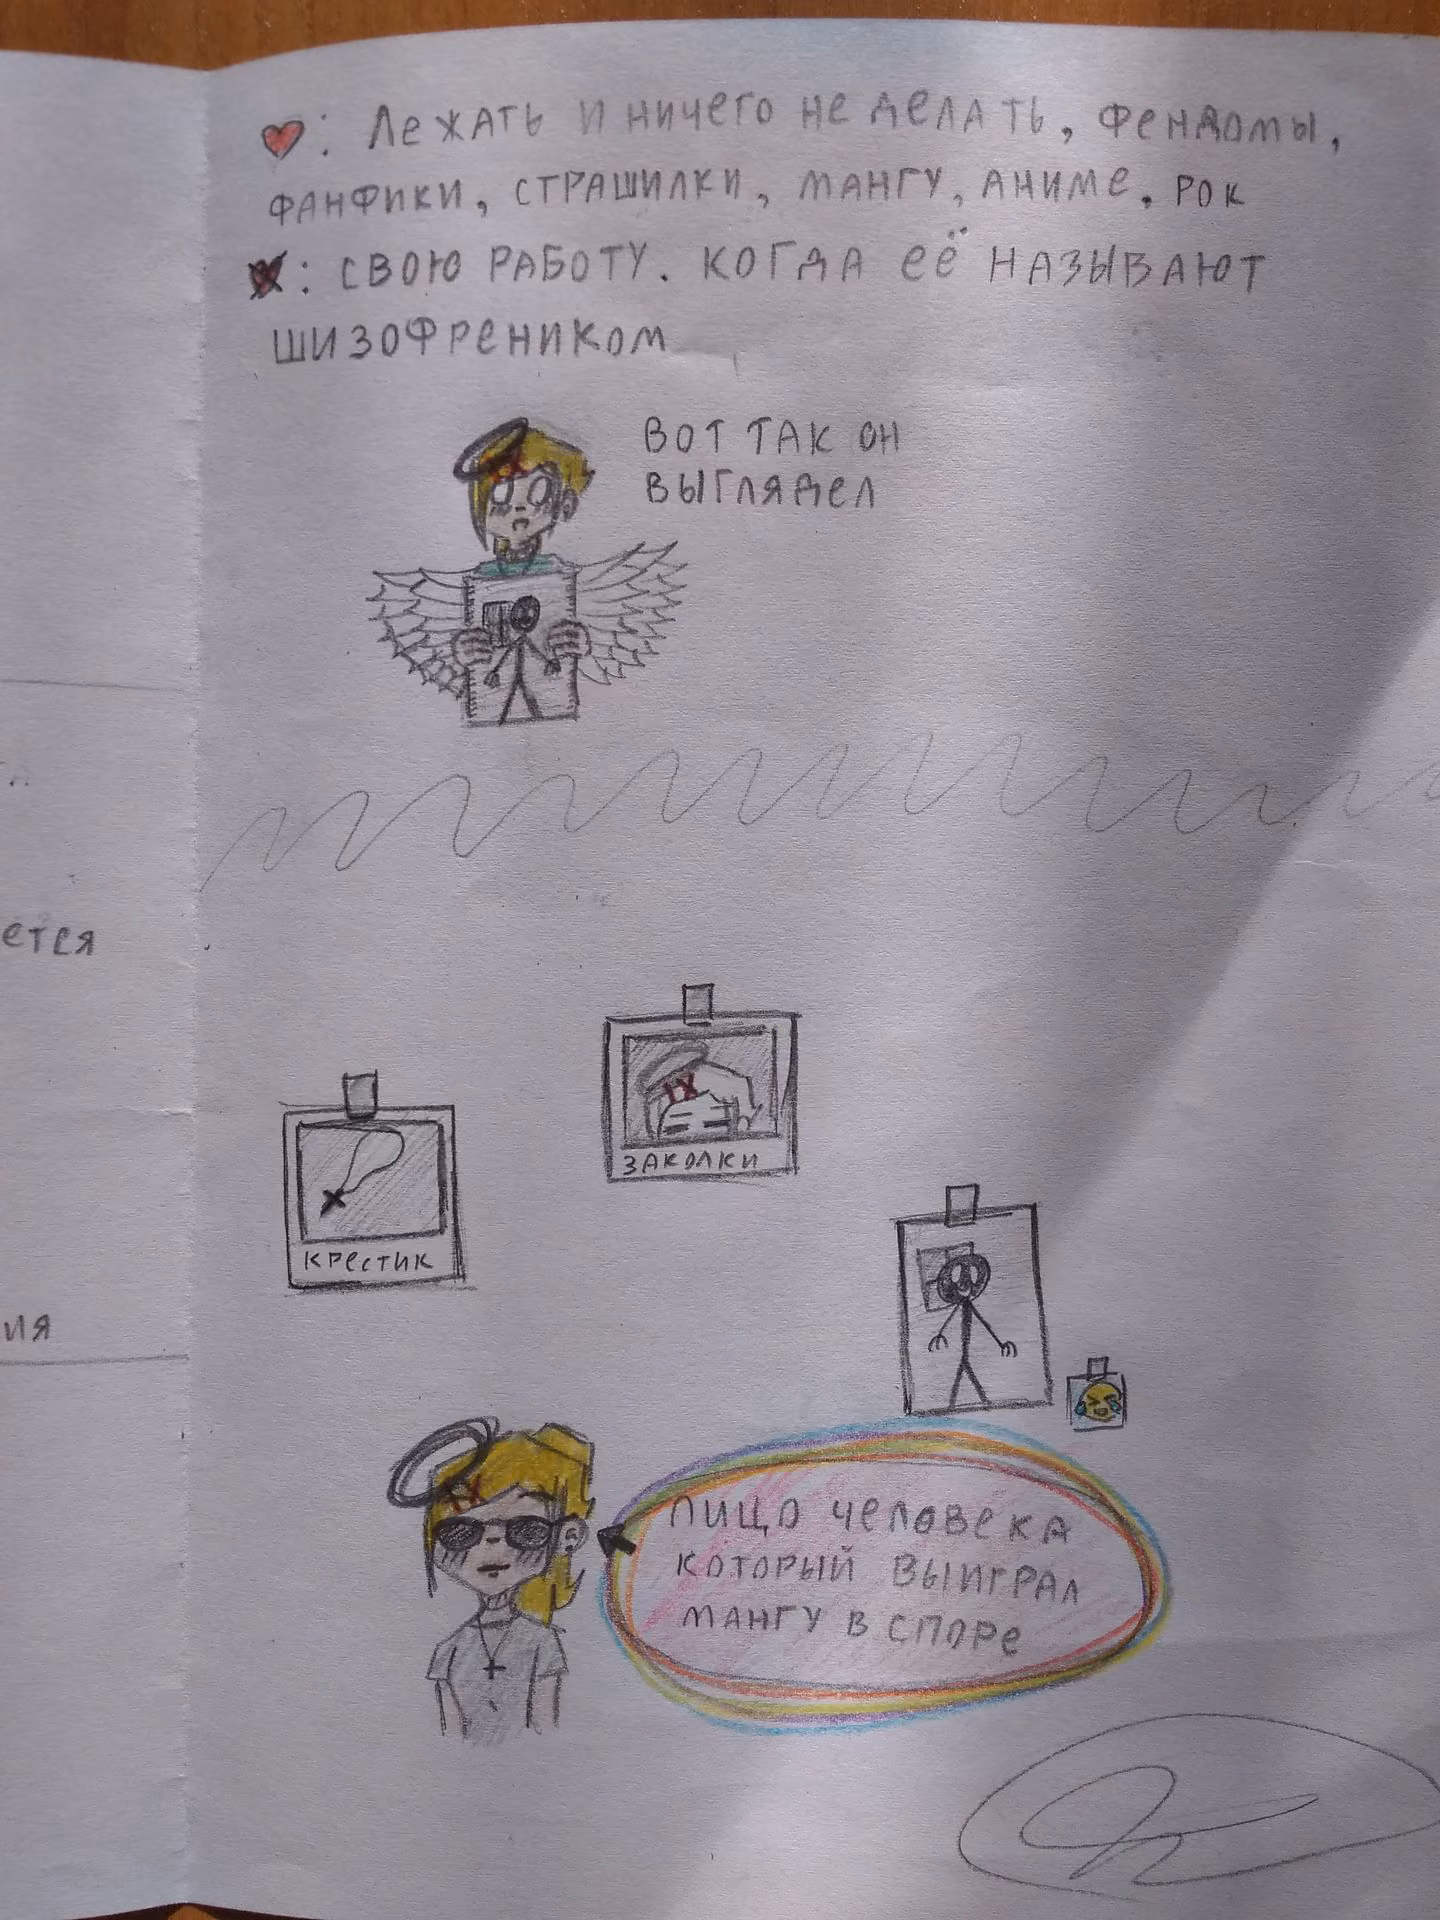 : Лежать и ничего не делать, фендомы,
фанфики, страшилки, мангу, аниме, рок
: свою работу. когда её называют
шизофреником
вот так он
выглядел
ется
IX
заколки
крестик
ия
IX
лицо человека
который выиграл
мангу в споре